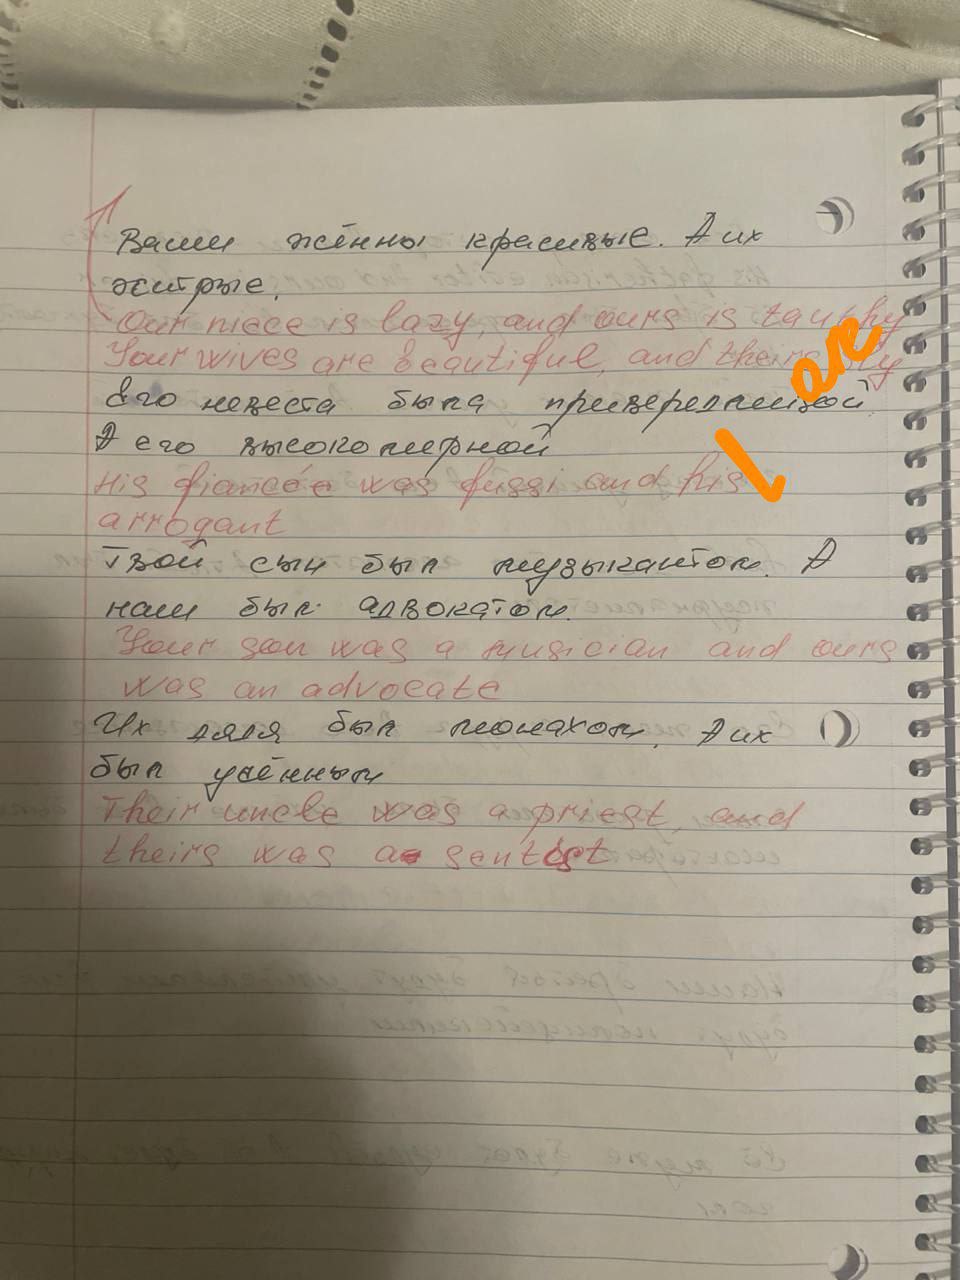 Ваши жённы красивые. А их
хитрые.
Our niece is lazy, and ours is tauchy
Your wives are beautiful, and theirs
are
Его невеста была
А его высокомерной
His fiancée was fussi and his
arrogant
Твой сын был музыкантом. А
наш был адвокатом.
Your son was a musician and ours
was an advocate
Их дядя был монахом. А их
был учённым
Their uncle was a priest, and
theirs was a sentist